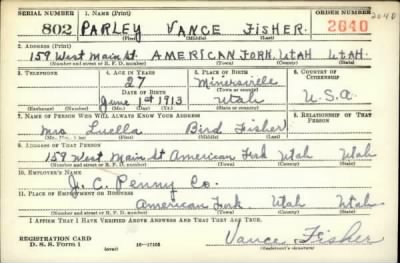 SERIAL NUMBER 1. NAME (Print) ORDER NUMBER
802 PARLEY VANCE FISHER. 2640 2640
(First) (Middle) (Last)
2. ADDRESS (Print)
159 West Main St. AMERICAN FORK, UTAH UTAH.
(Number and street or R. F. D. number) (Town) (County) (State)
3. TELEPHONE 4. AGE IN YEARS 5. PLACE OF BIRTH 6. COUNTRY OF CITIZENSHIP
27 Minersville
(Town or county)
DATE OF BIRTH
June 1st 1913 Utah U.S.A.
(Exchange) (Number) (Mo.) (Day) (Yr.) (State or country)
7. NAME OF PERSON WHO WILL ALWAYS KNOW YOUR ADDRESS 8. RELATIONSHIP OF THAT PERSON
Mrs Luella Bird Fisher
(First) (Middle) (Last)
9. ADDRESS OF THAT PERSON
159 West Main St American Fork Utah Utah
(Number and street or R. F. D. number) (Town) (County) (State)
10. EMPLOYER'S NAME
J. C. Penny Co.
11. PLACE OF EMPLOYMENT OR BUSINESS
American Fork Utah Utah
(Number and street or R. F. D. number) (Town) (County) (State)
I AFFIRM THAT I HAVE VERIFIED ABOVE ANSWERS AND THAT THEY ARE TRUE.
REGISTRATION CARD
D. S. S. Form 1 (over) Vance Fisher
(Registrant's signature)